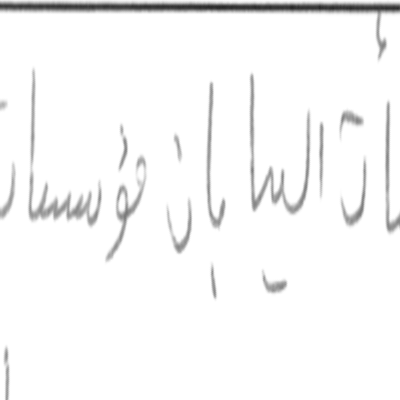 أت اليابان مؤسسات